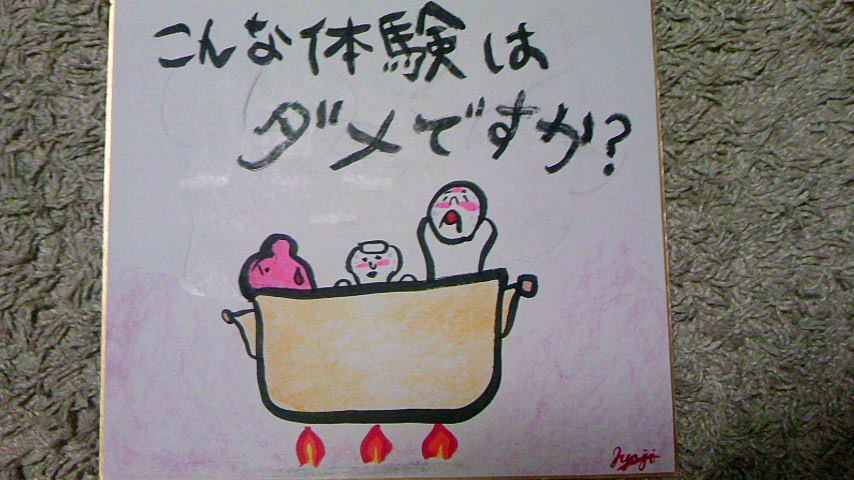 こんな体験は
ダメですか?